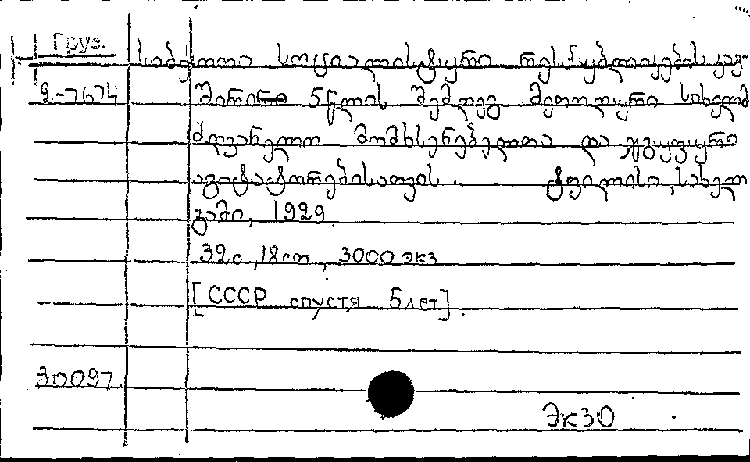 Груз.
საბჭოთა სოციალისტური რესპუბლიკების კავ-
2-7674 შირი 5 წლის შემდეგ მეთოდური სახელმ
ძღვანელო მომხსენებელთა და ჯგუფური
აგიტატორებისათვის ტფილისი, სახელ
გამი, 1929
32с, 18 см, 3000 экз
[СССР спустя 5 лет].
30097
Экз0